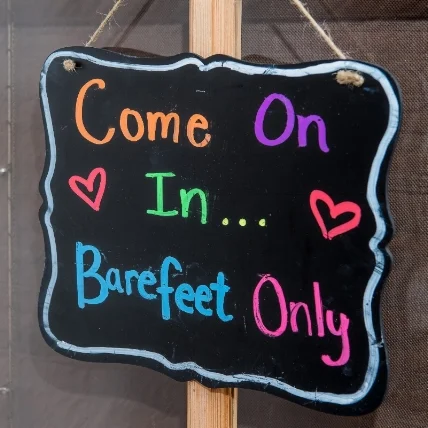 Come On
In...
Barefeet Only